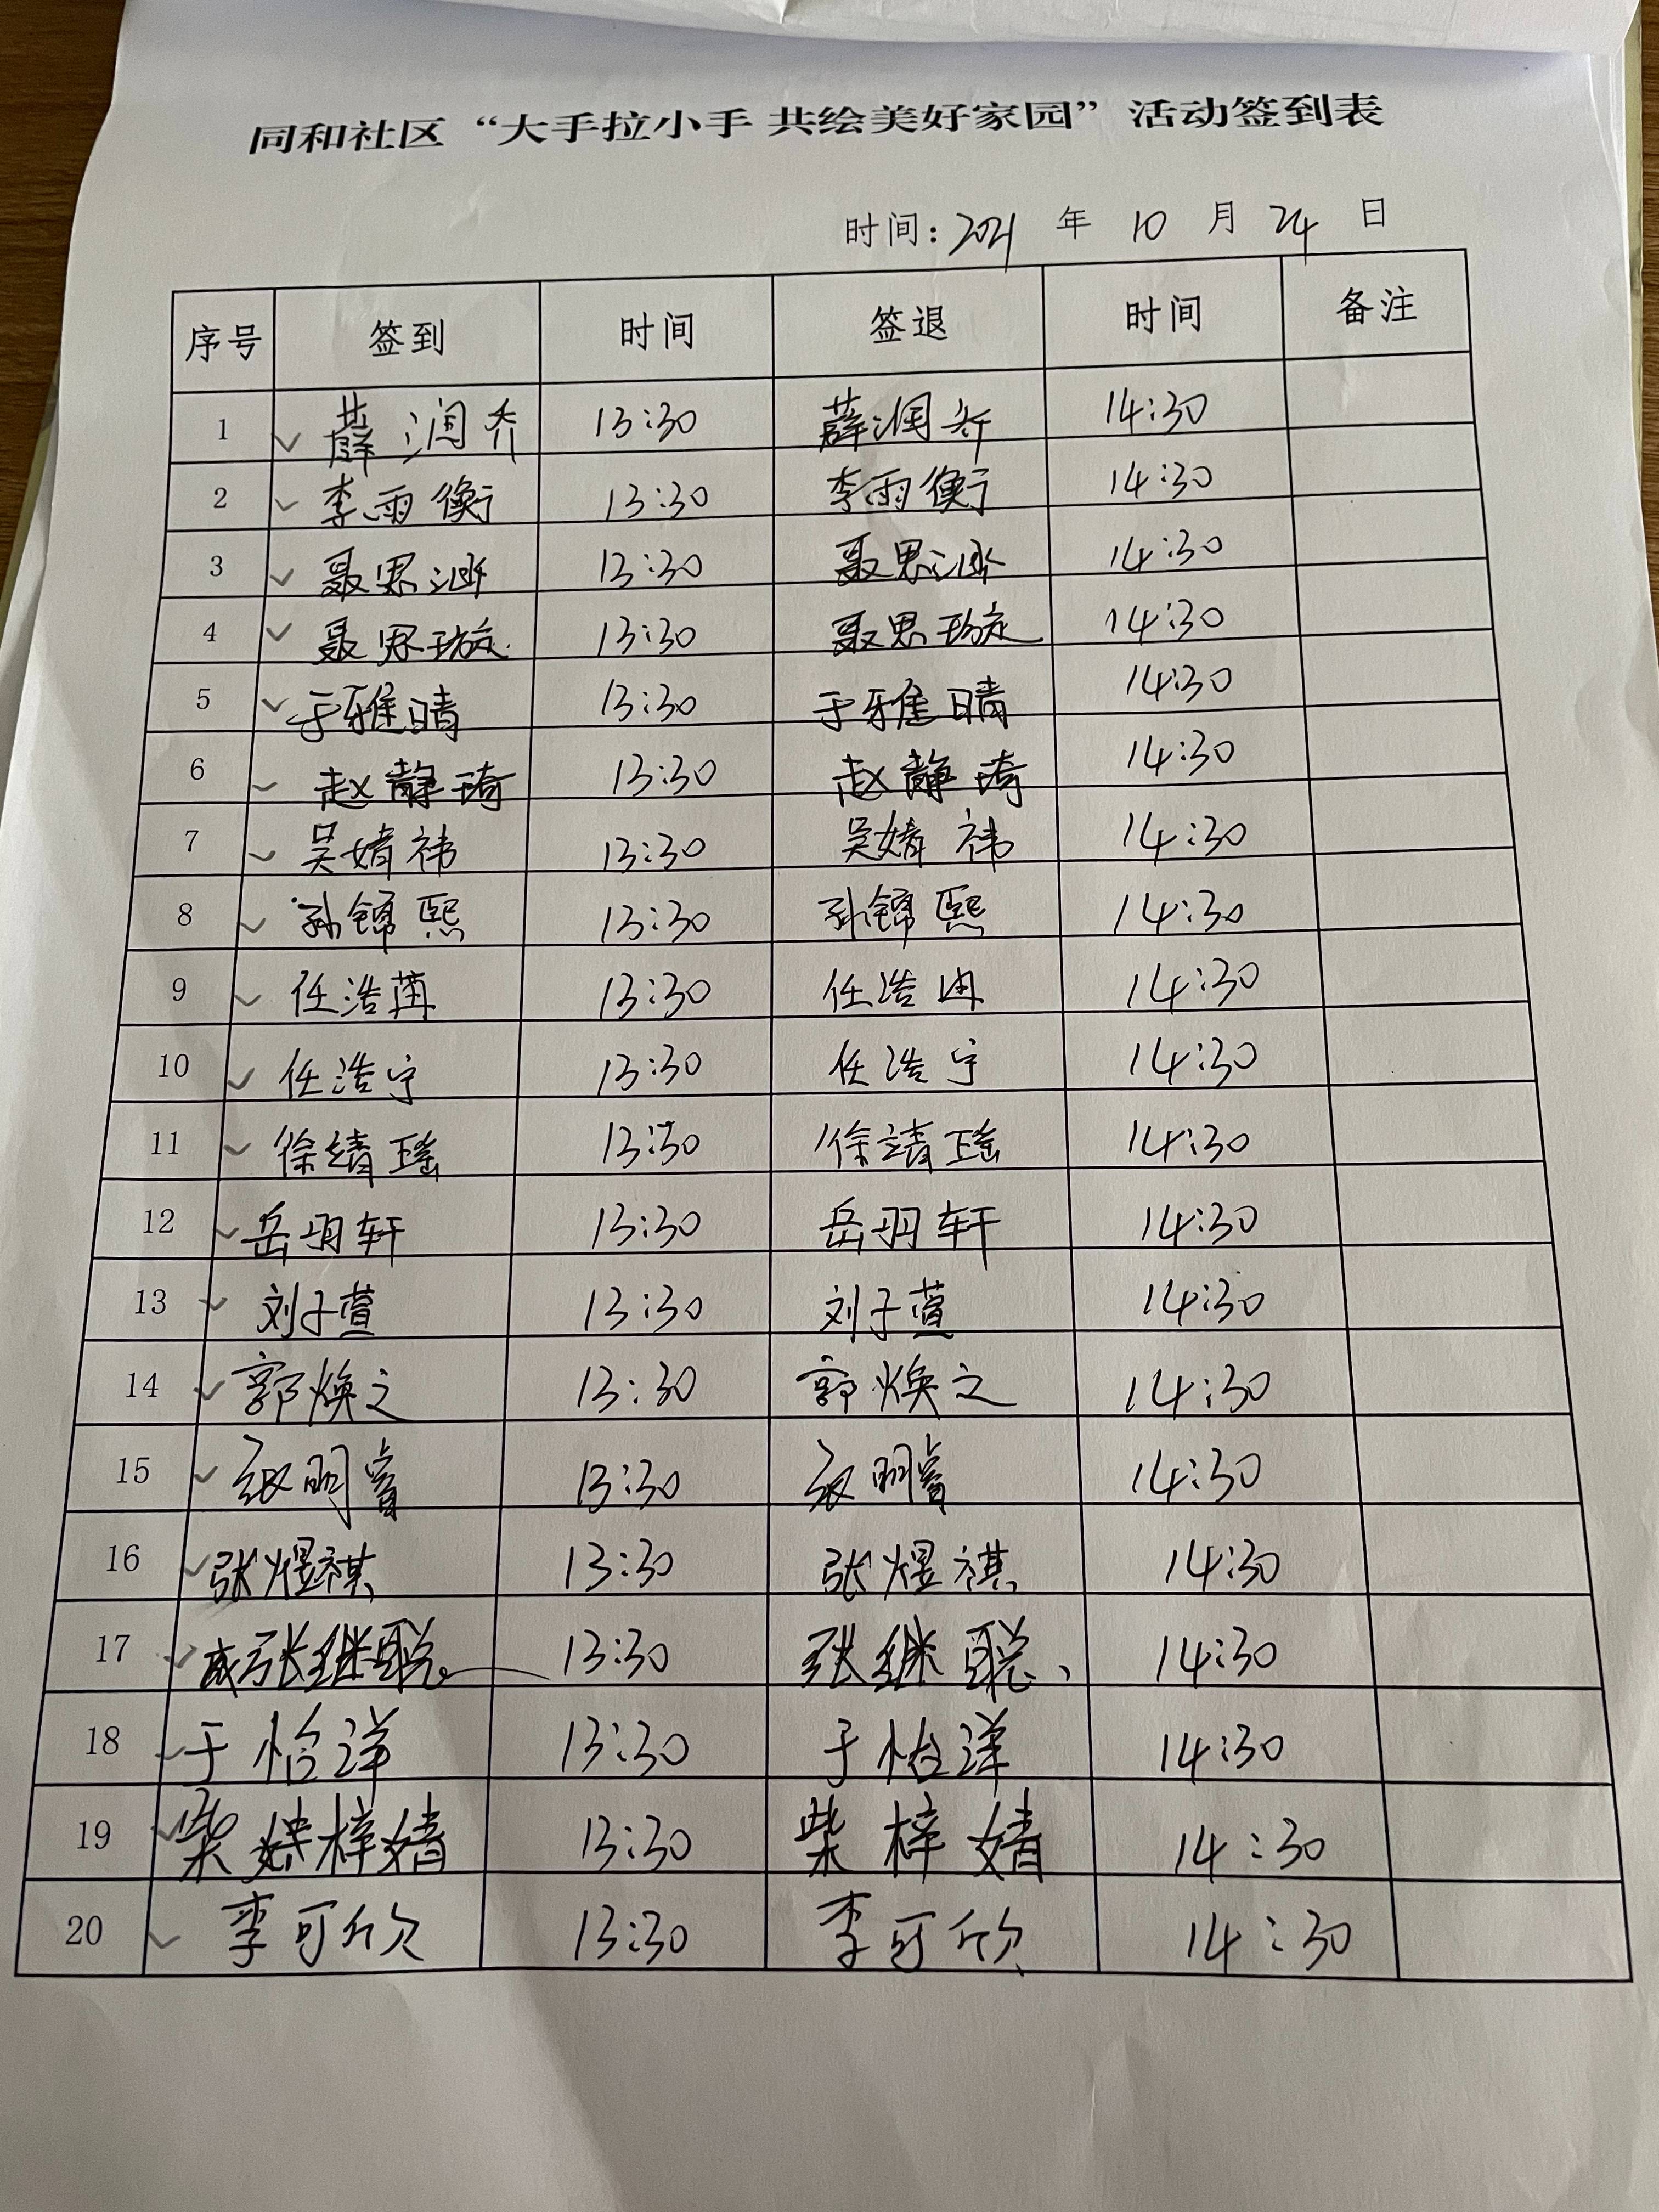 同和社区“大手拉小手 共绘美好家园”活动签到表
时间:2021 年 10 月 24 日
序号 签到 时间 签退 时间 备注
1 薛润乔 13:30 薛润乔 14:30
2 李雨衡 13:30 李雨衡 14:30
3 聂思 13:30 聂思 14:30
4 聂思璇 13:30 聂思璇 14:30
5 于雅晴 13:30 于雅晴 14:30
6 赵静琦 13:30 赵静琦 14:30
7 吴婧祎 13:30 吴婧祎 14:30
8 孙锦熙 13:30 孙锦熙 14:30
9 任浩 13:30 任浩冉 14:30
10 任浩宁 13:30 任浩宁 14:30
11 徐靖瑶 13:30 徐靖瑶 14:30
12 岳玥轩 13:30 岳玥轩 14:30
13 刘子萱 13:30 刘子萱 14:30
14 郭焕之 13:30 郭焕之 14:30
15 张明睿 13:30 张明睿 14:30
16 张煜祺 13:30 张煜祺 14:30
17 张继聪 13:30 张继聪 14:30
18 于怡洋 13:30 于怡洋 14:30
19 柴梓婧 13:30 柴梓婧 14:30
20 李可欣 13:30 李可欣 14:30